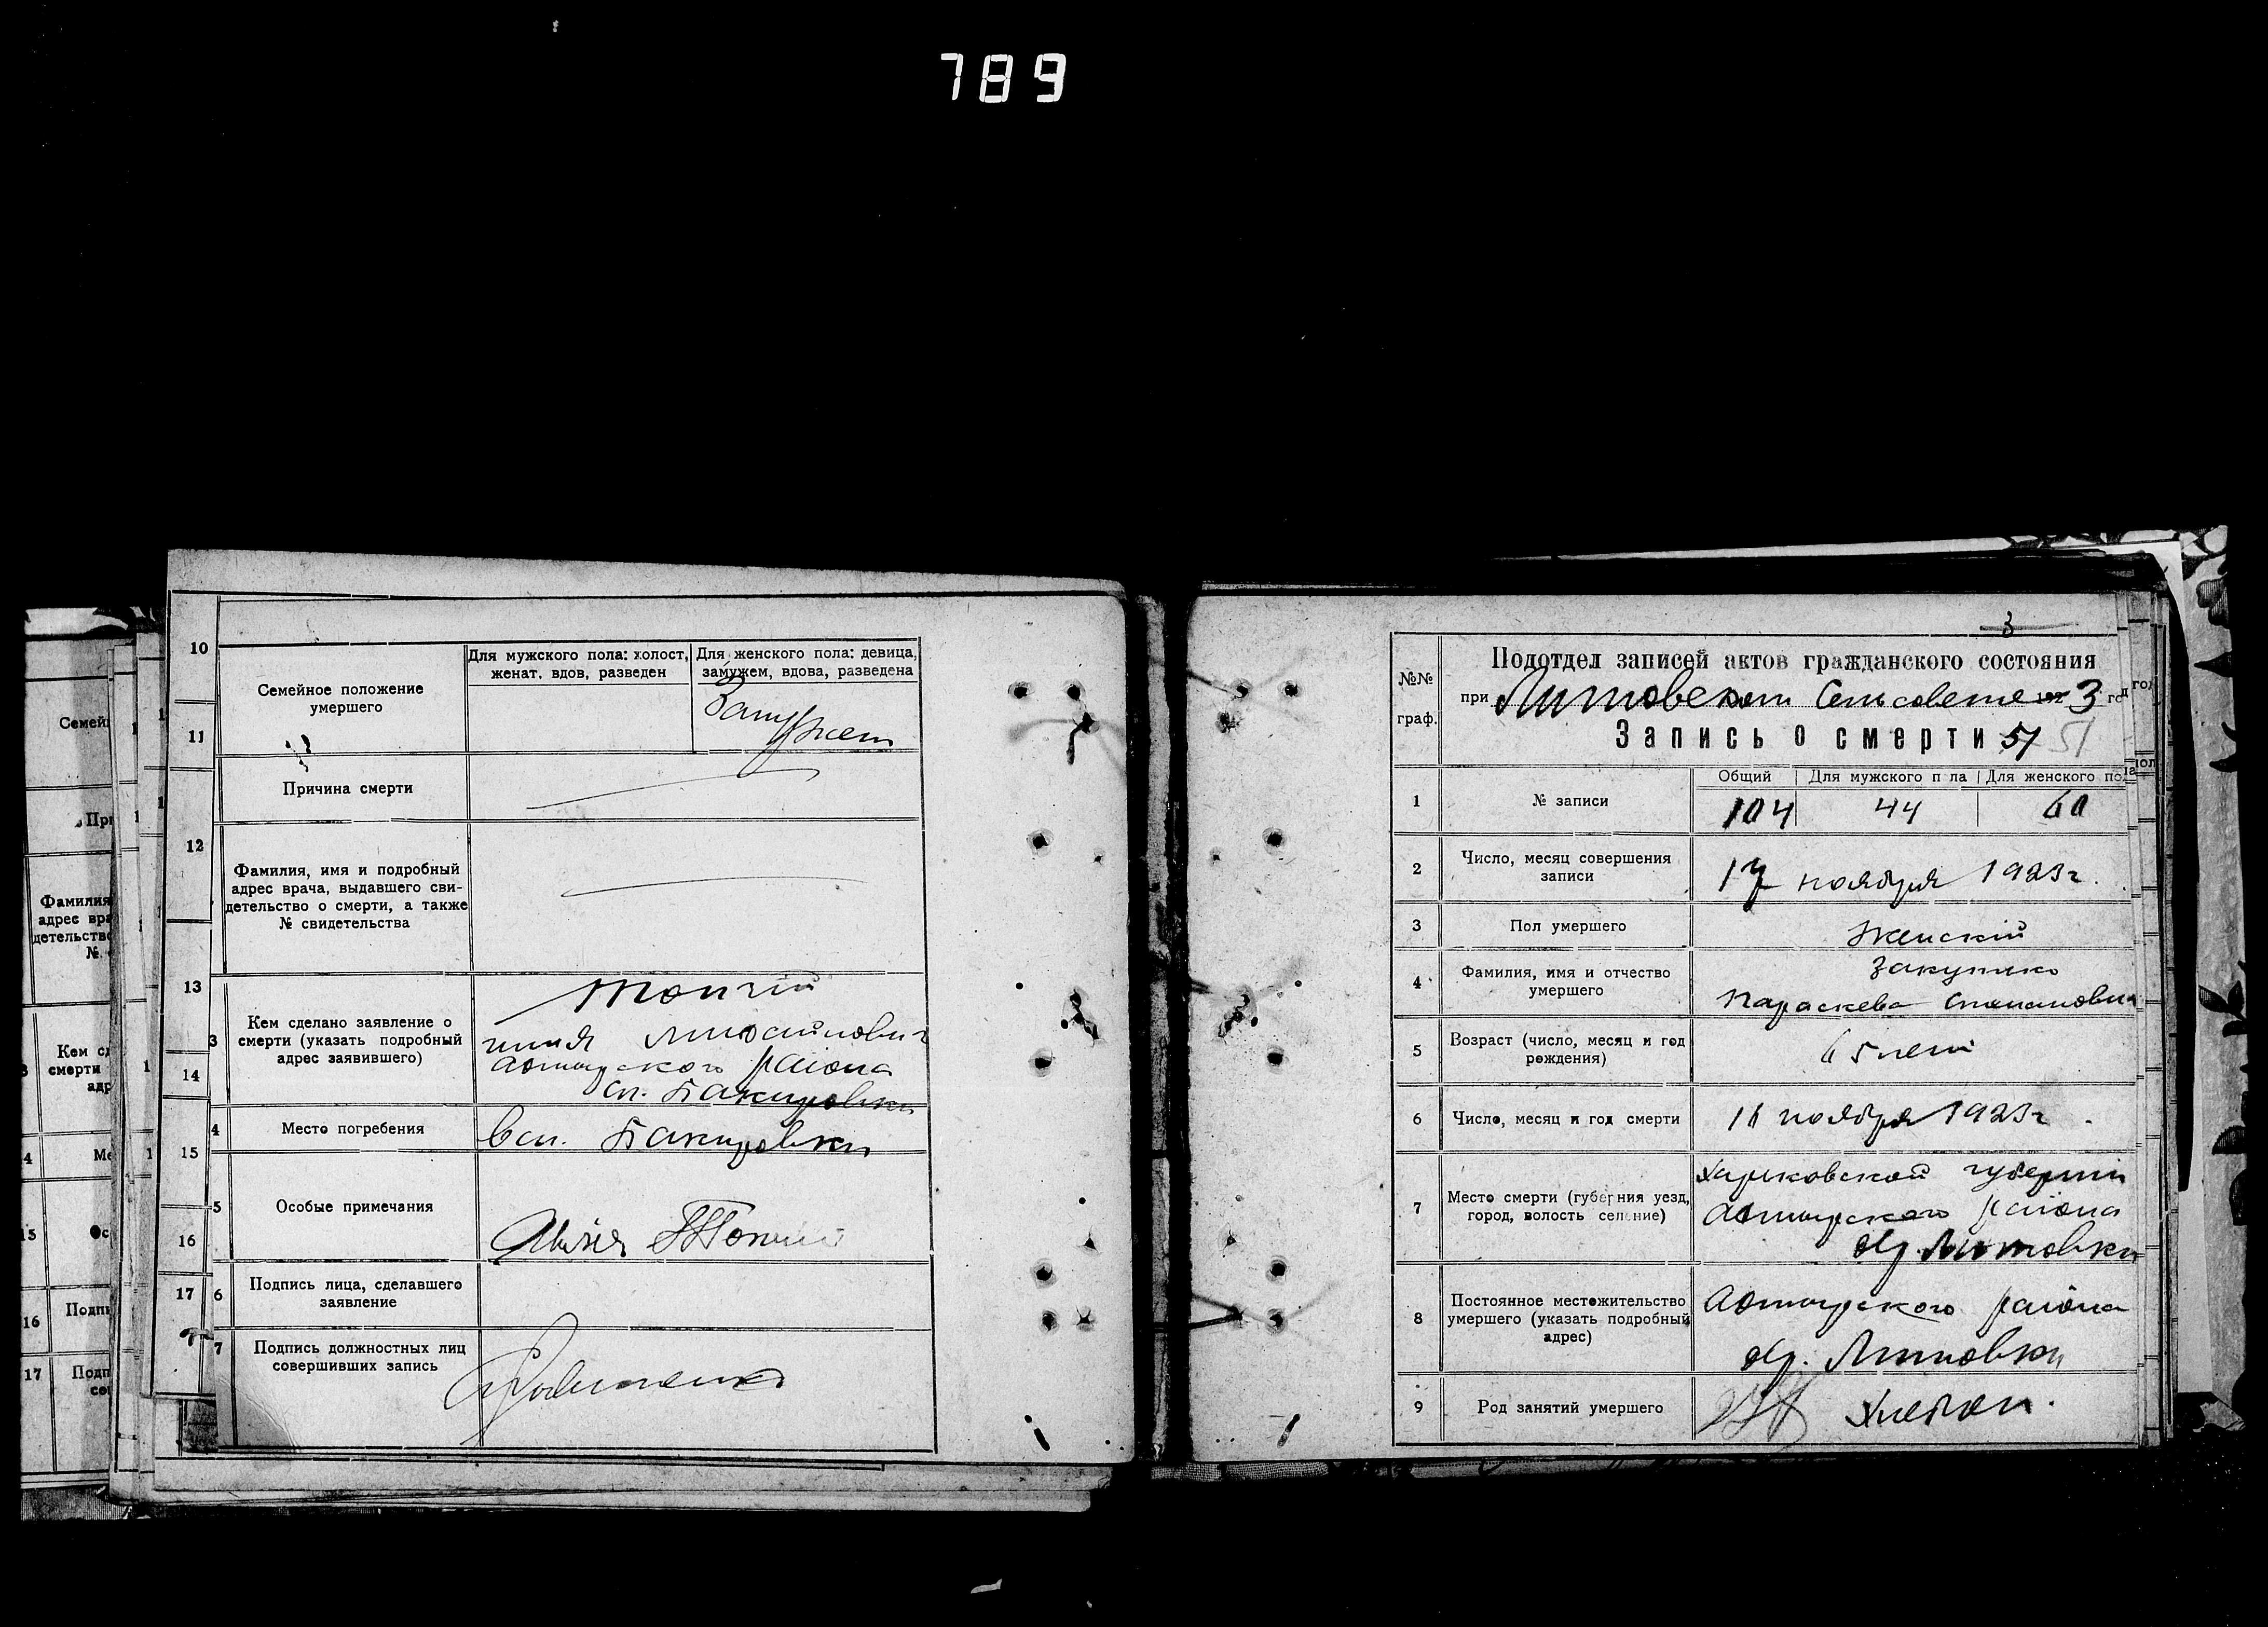 789
10
11
12
13
14
15
16
17
Семейное положение
умершего
Для мужского пола: холост,
женат, вдов, разведен
Для женского пола: девица,
замужем, вдова, разведена
Замужем
Причина смерти
Фамилия, имя и подробный
адрес врача, выдавшего сви-
детельство о смерти, а также
№ свидетельства
3
Кем сделано заявление о
смерти (указать подробный
адрес заявившего)
Ахтырского района
сл. Бакировки
4
Место погребения
в сл. Бакировки
5
Особые примечания
6
Подпись лица, сделавшего
заявление
7
Подпись должностных лиц
совершивших запись
3
№№
граф.
Подотдел записей актов гражданского состояния
при Литовском Сельсовете 192 3 год
Запись о смерти 51 51
Общий
Для мужского п ла
Для женского пола
1
№ записи
104
44
60
2
Число, месяц совершения
записи
17 ноября 1923 г.
3
Пол умершего
Женский
4
Фамилия, имя и отчество
умершего
Параскева
5
Возраст (число, месяц и год
рождения)
65 лет
6
Число, месяц и год смерти
16 ноября 1923 г.
7
Место смерти (губерния уезд,
город, волость селение)
Харьковской губернии
Ахтырского района
Литовки
8
Постоянное местожительство
умершего (указать подробный
адрес)
Ахтырского района
Литовки
9
Род занятий умершего
Хлебоп.